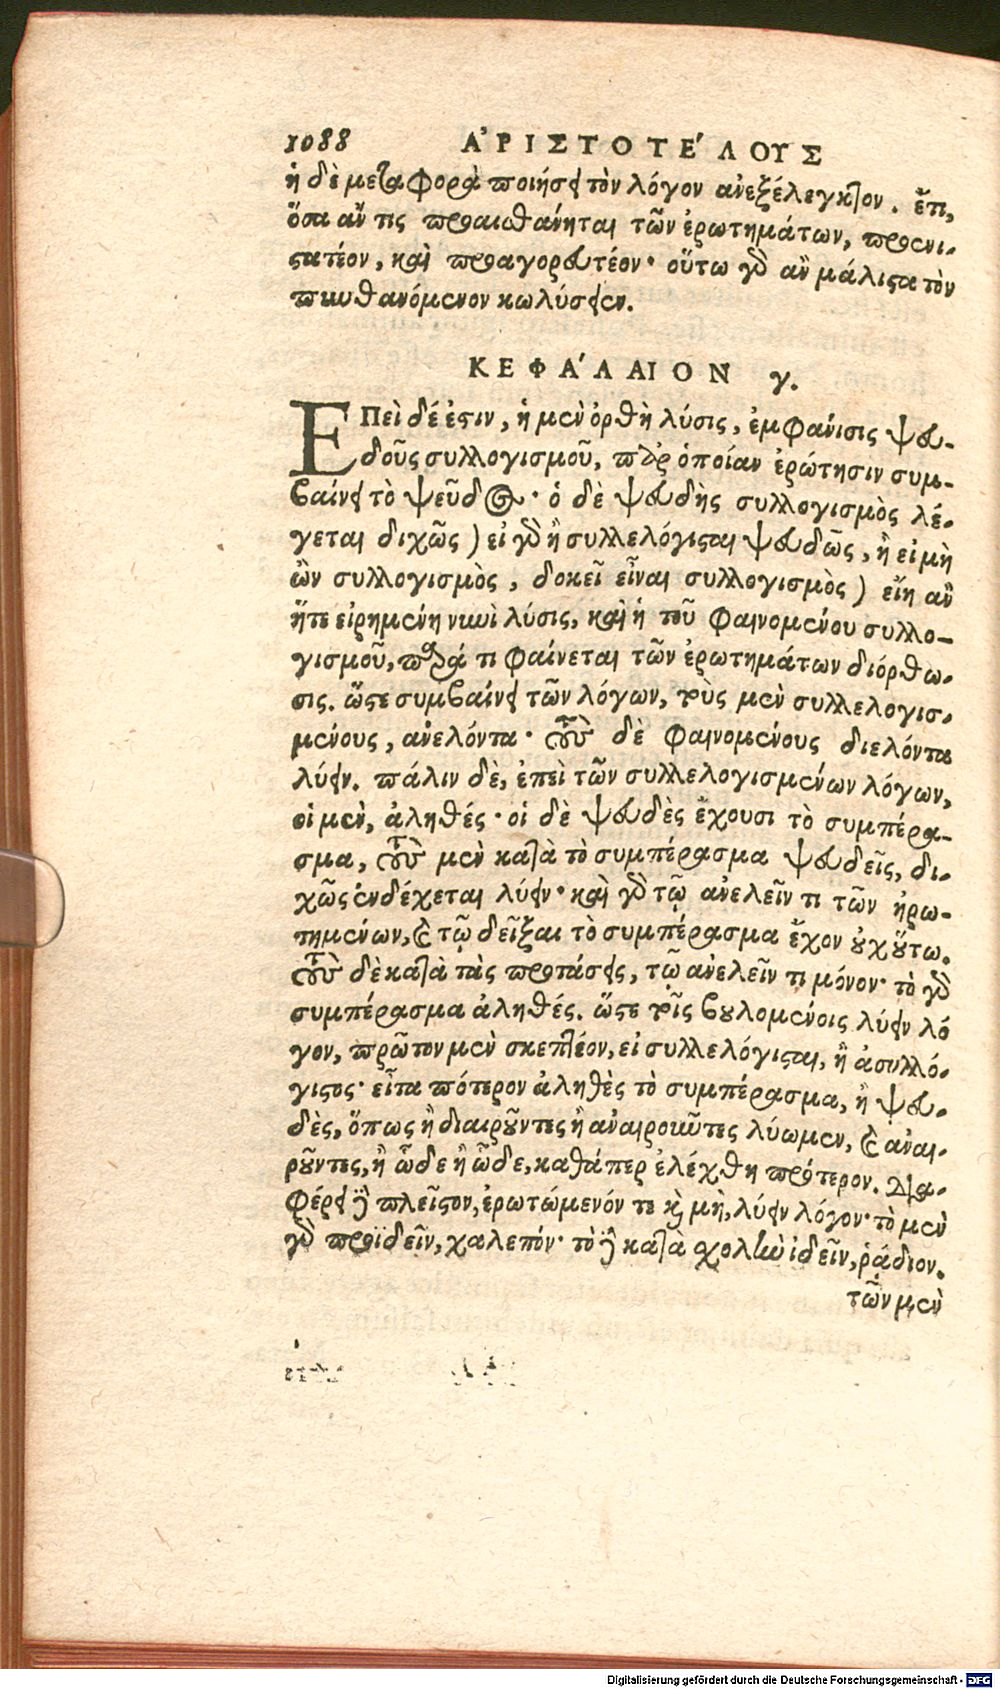 1088 ἈΡΙΣΤΟΤΈΛΟΥΣ
ἡ δὲ μεταφορὰ ποιήσει τὸν λόγον ἀνεξέλεγκτον. ἔτι,
ὅσα ἄν τις προαισθάνηται τῶν ἐρωτημάτων, προενι-
στατέον, καὶ προαγορευτέον· οὕτω γὸ ἂν μάλιστα τὸν
πυνθανόμενον κωλύσειεν.
ΚΕΦΆΛΑΙΟΝ γ.
ΕΠεὶ δέ ἐστιν, ἡ μὲν ὀρθὴ λύσις, ἐμφάνισις ψευ-
δοῦς συλλογισμοῦ, παρ ὁποίαν ἐρώτησιν συμ-
βαίνει τὸ ψεῦδος· ὁ δὲ ψευδὴς συλλογισμὸς λέ-
γεται διχῶς) εἰ γὸ ἢ συλλελόγισται ψευδῶς, ἢ εἰ μὴ
ὢν συλλογισμὸς, δοκεῖ εἶναι συλλογισμὸς) εἴη ἂν
ἥτε εἰρημένη νυνὶ λύσις, καὶ ἡ τοῦ φαινομένου συλλο-
γισμοῦ, παρά τι φαίνεται τῶν ἐρωτημάτων διόρθω-
σις. ὥστε συμβαίνει τῶν λόγων, τοὺς μὲν συλλελογισ-
μένους, ἀνελόντα· τοὺς δὲ φαινομένους διελόντα
λύειν. πάλιν δὲ, ἐπεὶ τῶν συλλελογισμένων λόγων,
οἱ μὲν, ἀληθές· οἱ δὲ ψευδὲς ἔχουσι τὸ συμπέρα-
σμα, τοὺς μὲν κατὰ τὸ συμπέρασμα ψευδεῖς, δι-
χῶς ἐνδέχεται λύειν· καὶ γὸ τῷ ἀνελεῖν τι τῶν ἠρω-
τημένων, καὶ τῷ δεῖξαι τὸ συμπέρασμα ἔχον οὐχ οὕτω.
τοὺς δὲ κατὰ τὰς προτάσεις, τῷ ἀνελεῖν τι μόνον· τὸ γὸ
συμπέρασμα ἀληθές. ὥστε τοῖς βουλομένοις λύειν λό
γον, πρῶτον μὲν σκεπτέον, εἰ συλλελόγισται, ἢ ἀσυλλό-
γιστος· εἶτα πότερον ἀληθὲς τὸ συμπέρασμα, ἢ ψευ-
δὲς, ὅπως ἢ διαιροῦντες ἢ ἀναιροῦντες λύωμεν, καὶ ἀναι-
ροῦντες, ἢ ὧδε ἢ ὧδε, καθάπερ ἐλέχθη πρότερον. Δια-
φέρει δὲ πλεῖστον, ἐρωτώμενόν τε καὶ μὴ, λύειν λόγον· τὸ μὲν
γὸ προϊδεῖν, χαλεπόν· τὸ δὲ κατὰ σχολὴν ἰδεῖν, ῥᾴδιον.
τῶν μὲν